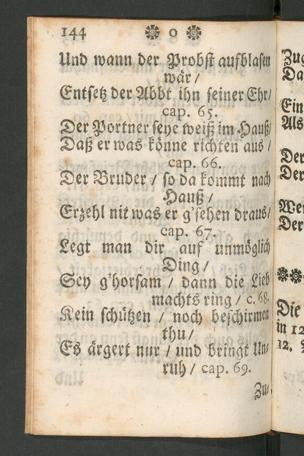 144 ❉ o ❉
Und wann der Probst aufblasen
wär /
Entsetz der Abbt ihn seiner Ehr /
cap. 65.
Der Portner seye weiß im Hauß /
Daß er was könne richten aus /
cap. 66.
Der Bruder / so da kommt nach
Hauß /
Erzehl nit was er g'sehen draus /
cap. 67.
Legt man dir auf unmöglich
Ding /
Sey g'horsam / dann die Lieb
machts ring / c. 68.
Kein schützen / noch beschirmen
thu /
Es ärgert nur / und bringt Un-
ruh / cap. 69.
Zu-
Da
Ein
Als
Der
Der
Der
❉❉
Die
in 12
12.